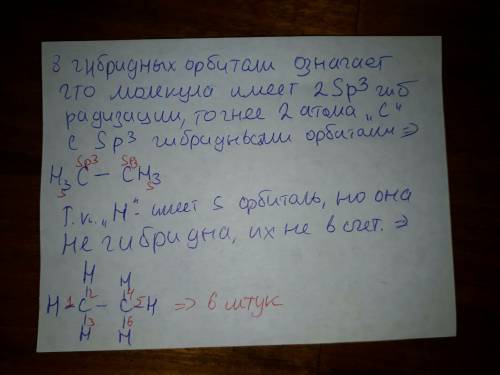 8 гибридных орбитали означает
что молекула имеет 2 Sp3 гиб
радизации, точнее 2 атома „С“
с Sp3 гибридными орбиталями =>
Sp3 Sp3
H3C – CH3
S S
Т.к. „H“ - имеет S орбиталь, но она
не гибридна, их не в счет. =>
H H
2 4
H 1 C – C 5 H => 6 штук
3 6
H H